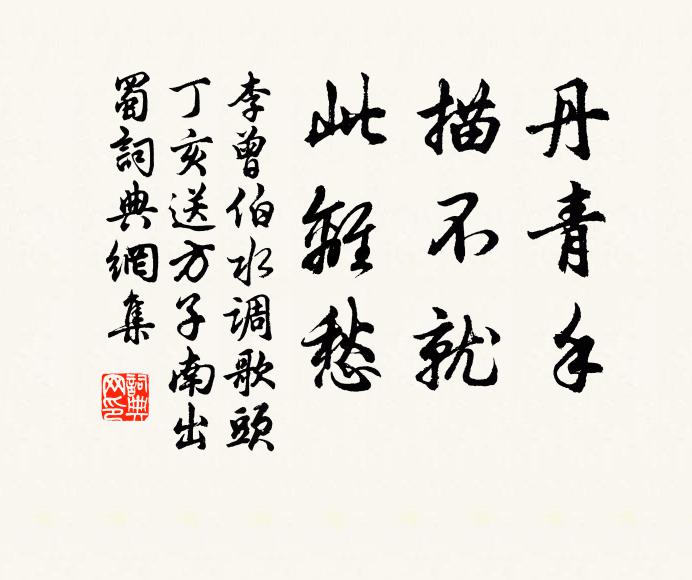 丹青手
描不就
此離愁
李曾伯水调歌頭
丁亥送方子南出
蜀詞典網集
詞典
网印